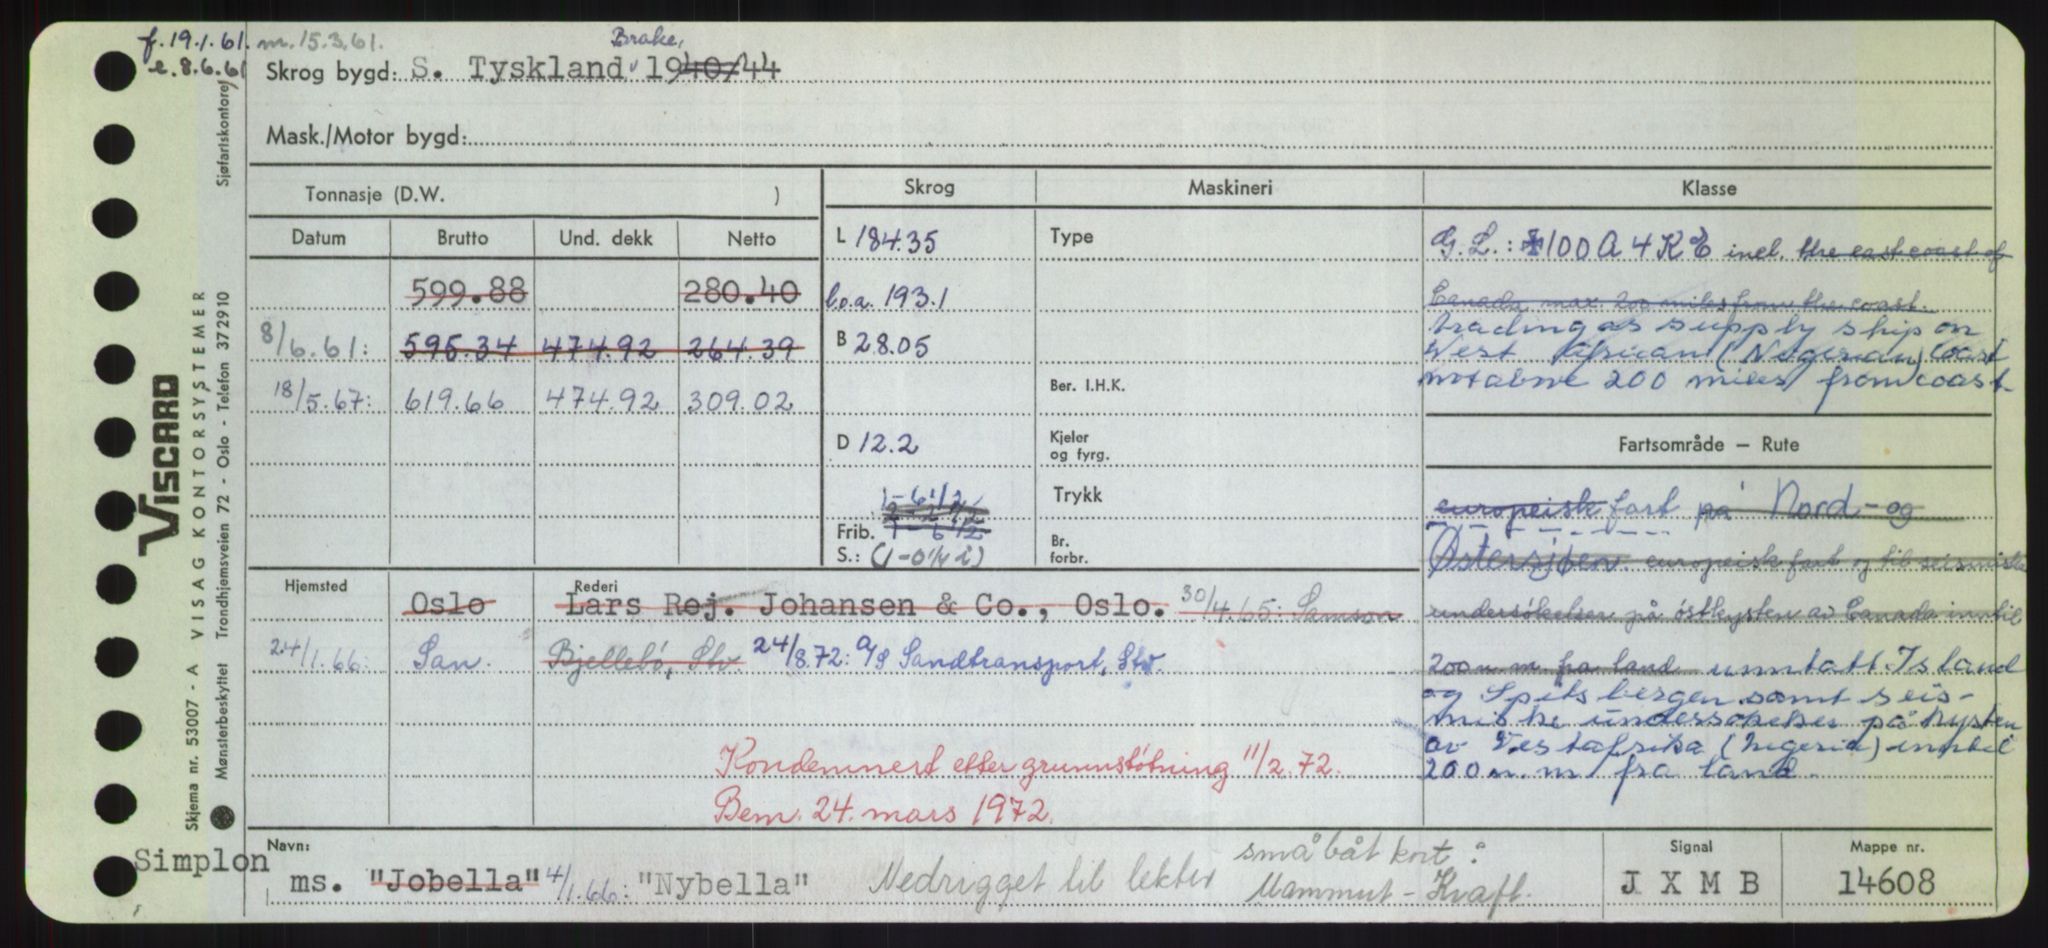 f. 19.1.61. m. 15.3.61.
e. 8.6.61
Brake,
Skrog bygd: S. Tyskland 1940/44
Mask./Motor bygd:
Tonnasje (D.W. )
Skrog
Maskineri
Klasse
Datum Brutto Und. dekk Netto
599.88 280.40
8/6.61: 595.34 474.92 264.39
18/5.67: 619.66 474.92 309.02
L 184.35
l.o.a. 193.1
B 28.05
D 12.2
1-6 1/2
Frib. 1 6 1/2
S.: (1-0 1/4 i)
Type
Ber. I.H.K.
Kjeler
og fyrg.
Trykk
Br.
forbr.
G.L.: 100 A 4 K E incl. the east coast of
Canada max. 200 miles from the coast.
trading as supply ship on
West African (Nigerian) Coast
not above 200 miles from coast
Fartsområde – Rute
europeisk fart på Nord- og
Østersjøen. europeisk fart og til seismiske
undersøkelser på østkysten av Canada inntil
200 n. m. fra land unntatt Island
og Spitsbergen samt seis-
miske undersøkelser på kysten
av Vestafrika (Nigeria) inntil
200 n. m fra land.
Hjemsted Rederi
Oslo Lars Rej. Johansen & Co., Oslo. 30/4.65: Samson
24/1.66: San. Bjellebø, Stv 24/8.72: A/S Sandtransport, Stv.
Kondemnert etter grunnstøtning 11/2.72.
Bem. 24. mars 1972.
Simplon
Navn:
ms. "Jobella" 4/1.66: "Nybella" Nedrigget til lekter småbåt kort:
Mammut - Kraft.
Signal
J X M B
Mappe nr.
14608
VISCARD
Skjema nr. 53007 - A VISAG KONTORSYSTEMER
Mønsterbeskyttet Trondhjemsveien 72 - Oslo - Telefon 372910
Sjøfartskontoret